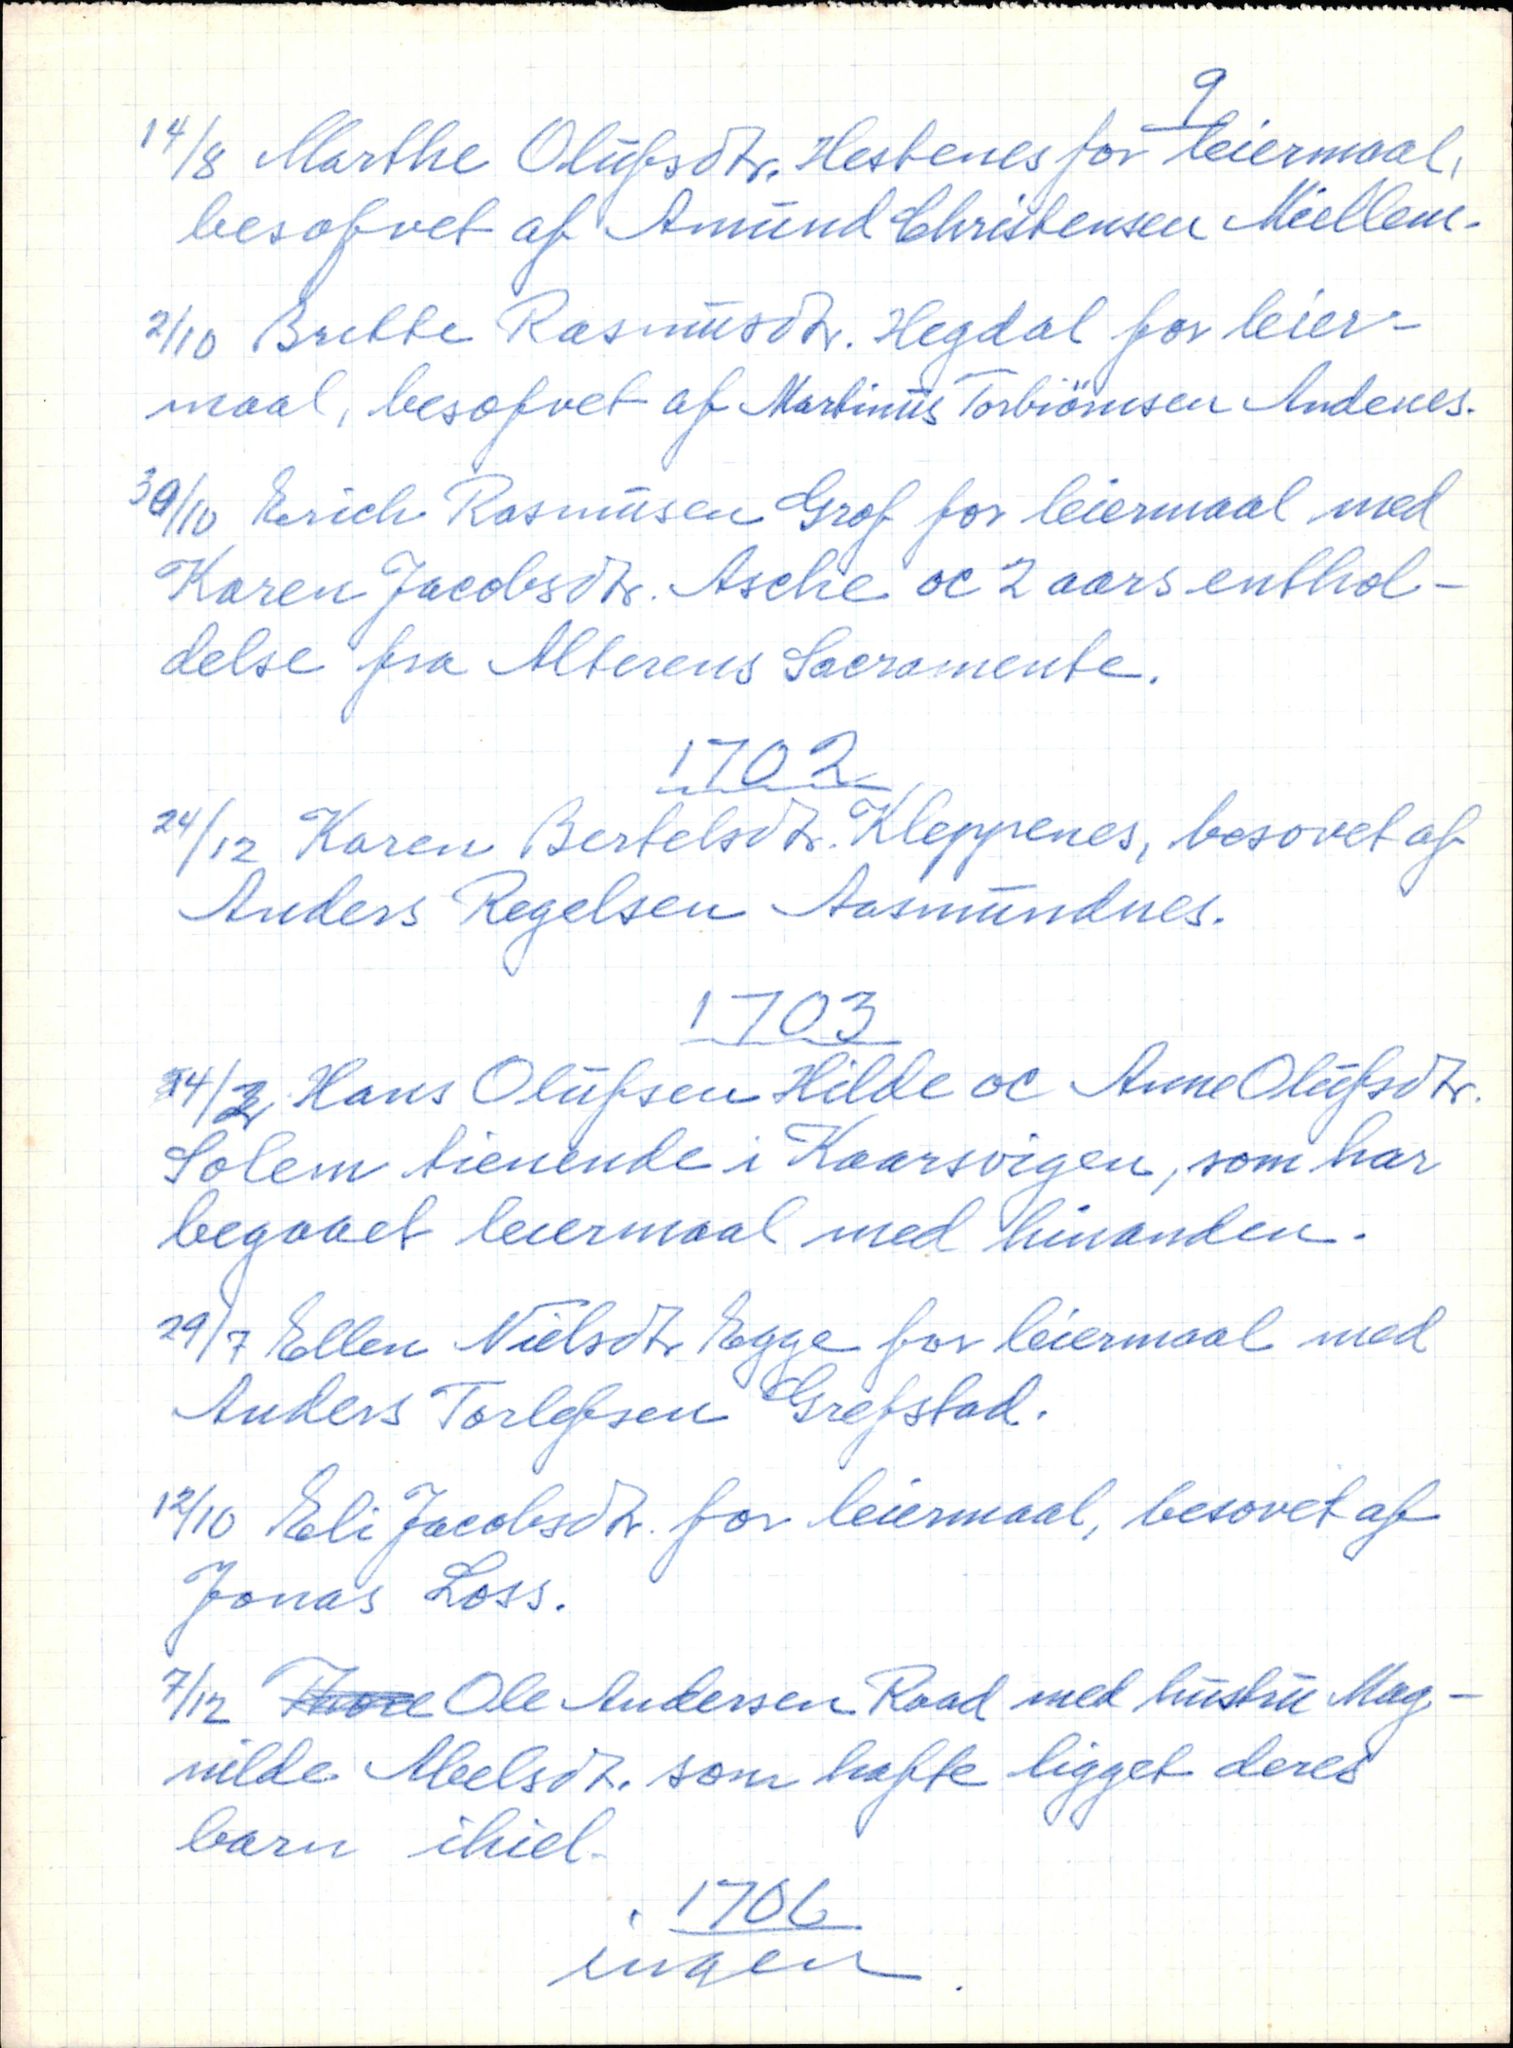 9
14/8 Marthe Olufsdtr. Hestenes for leiermaal,
besofvet af Amund Christensen Miellem.
2/10 Britte Rasmusdtr. Hegdal for leier-
maal, besofvet af Martinus Torbiörnsen Andenes.
30/10 Erich Rasmusen Grof for leiermaal med
Karen Jacobsdtr. Asche oc 2 aars enthol-
delse fra Alterens Sacramente.
1702
24/12 Karen Bertelsdtr. Kleppenes, besovet af
Anders Regelsen Aasmundnes.
1703
Hans Olufsen Hilde oc Anne Olufsdtr.
Solem tienende i Kaarsvigen, som har
begaaet leiermaal med hinanden.
29/7 Ellen Nielsdtr Egge for leiermaal med
Anders Torlefsen Grefstad.
12/10 Eli Jacobsdtr. for leiermaal, besovet af
Jonas Loss.
7/12 Ole Andersen Raad med hustru Mag-
nilde Abelsdt. som hafte ligget deres
barn ihiel.
1706
ingen.